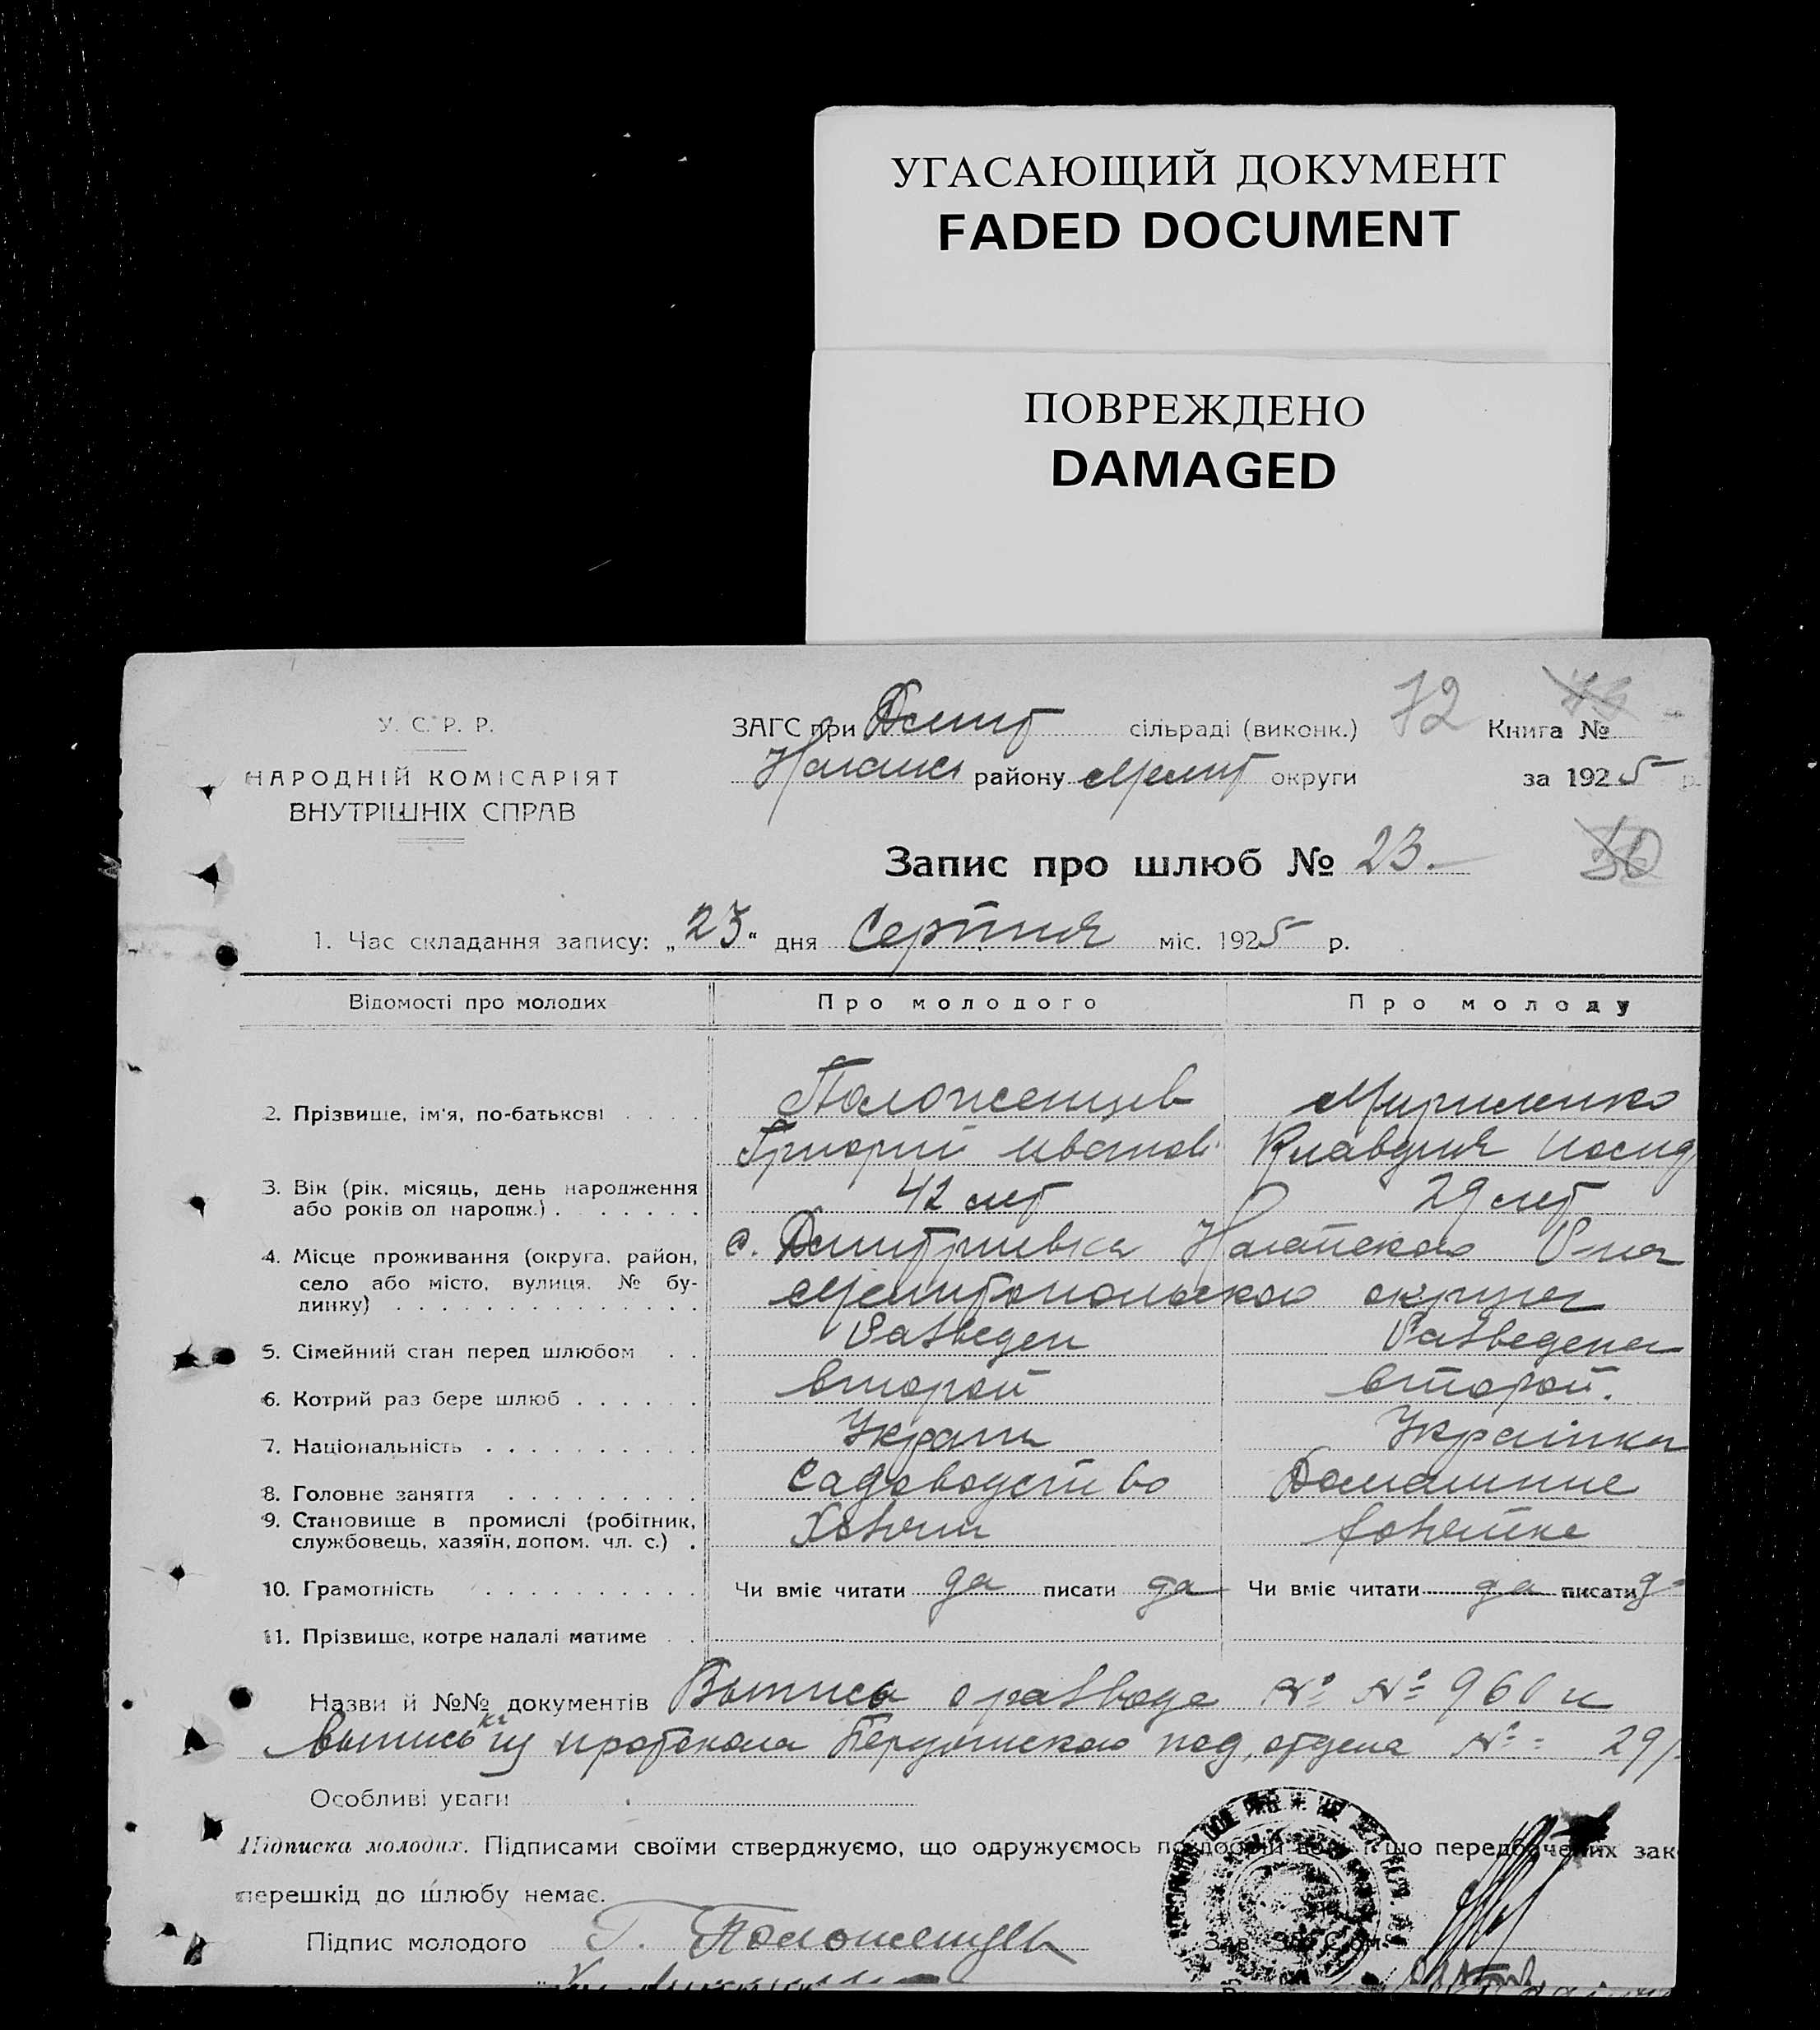 УГАСАЮЩИЙ ДОКУМЕНТ
FADED DOCUMENT
ПОВРЕЖДЕНО
DAMAGED
У. С. Р. Р.
НАРОДНІЙ КОМІСАРІЯТ
ВНУТРІШНІХ СПРАВ
ЗАГС при Дмит сільраді (виконк.) 72 Книга №
району Мелит округи за 1925 р.
Запис про шлюб № 23.
1. Час складання запису: „23“ дня Серпня міс. 1925 р.
Відомості про молодих Про молодого Про молоду
2. Прізвище, ім'я, по-батькові Положенцев
Григорий Иванов Клавдия
3. Вік (рік, місяць, день народження або років од народж.) 42 лет 29 лет
4. Місце проживання (округа, район, село або місто, вулиця, № будинку) с. Дмитриевка Ногайского Р-на
Мелитопольского округа
5. Сімейний стан перед шлюбом Разведен Разведена
6. Котрий раз бере шлюб второй второй.
7. Національність Українка
8. Головне заняття Садоводство Домашние
9. Становище в промислі (робітник, службовець, хазяїн, допом. чл. с.)
10. Грамотність Чи вміє читати да писати да Чи вміє читати да писати
11. Прізвище, котре надалі матиме
Назви й №№ документів Выпись о разводе № № 960 и
выпись из протокола под,отдела № 29
Особливі уваги
Підписка молодих. Підписами своїми стверджуємо, що одружуємось по добрій волі і що передбачених зак
перешкід до шлюбу немає.
Підпис молодого Г. Положенцев